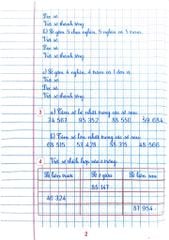 Đọc số:
Viết số:
Viết số thành tổng:
b) Số gồm 5 chục nghìn, 5 nghìn và 5 trăm.
Viết số:
Đọc số:
Viết số thành tổng:
c) Số gồm 4 nghìn, 4 trăm và 1 đơn vị.
Viết số:
Đọc số:
Viết số thành tổng:
3 a) Tìm số bé nhất trong các số sau:
34 567 85 352 58 556 59 684
b) Tìm số lớn nhất trong các số sau:
68 515 53 428 58 315 48 566
4 Viết số thích hợp vào ô trống:
Số liền trước Số ở giữa Số liền sau
55 147
46 324
57 954
2